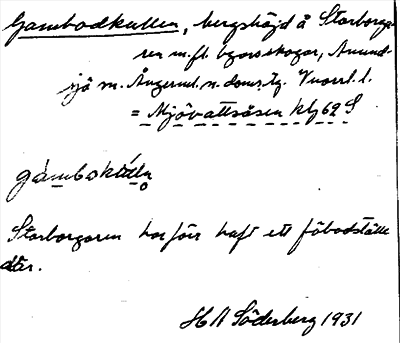 Gambodkullen, bergshöjd å Storborga-
ren m.fl. byars skogar, Anund-
sjö m. Ångerml. n. doms. tg. Vnorrl. l.
= Mjövattsåsen kbl 62 S
gámbokùlln̥
Storborgaren har förr haft ett fäbodställe
där.
H A Söderberg 1931